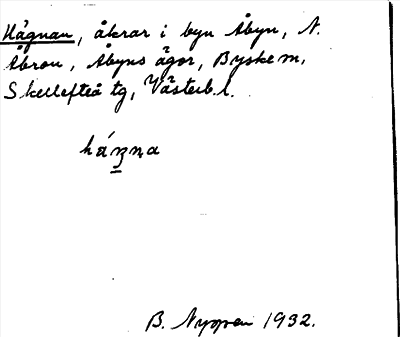 Hägnan, åkrar i byn Åbyn, N.
Åbron, Åbyns ägor, Byske sn,
Skellefteå tg, Västerb. l.
1932.